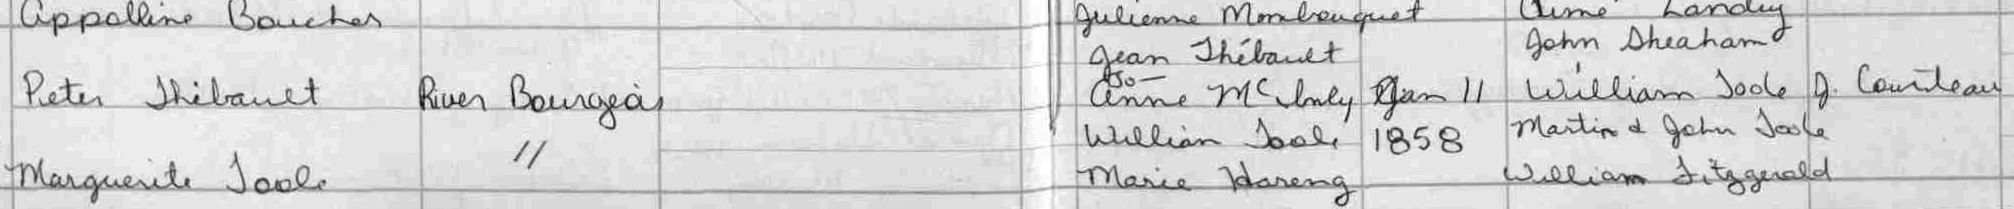 Appolline Boucher Julienne Mombouquet Aimé Landry
Jean Thébault John Sheahan
Peter Thibault River Bourgeois Anne McAuly Jan 11 William Toole J. Courteau
Marguerite Toole " William Toole 1858 Martin & John Toole
Marie Hareng William Fitzgerald